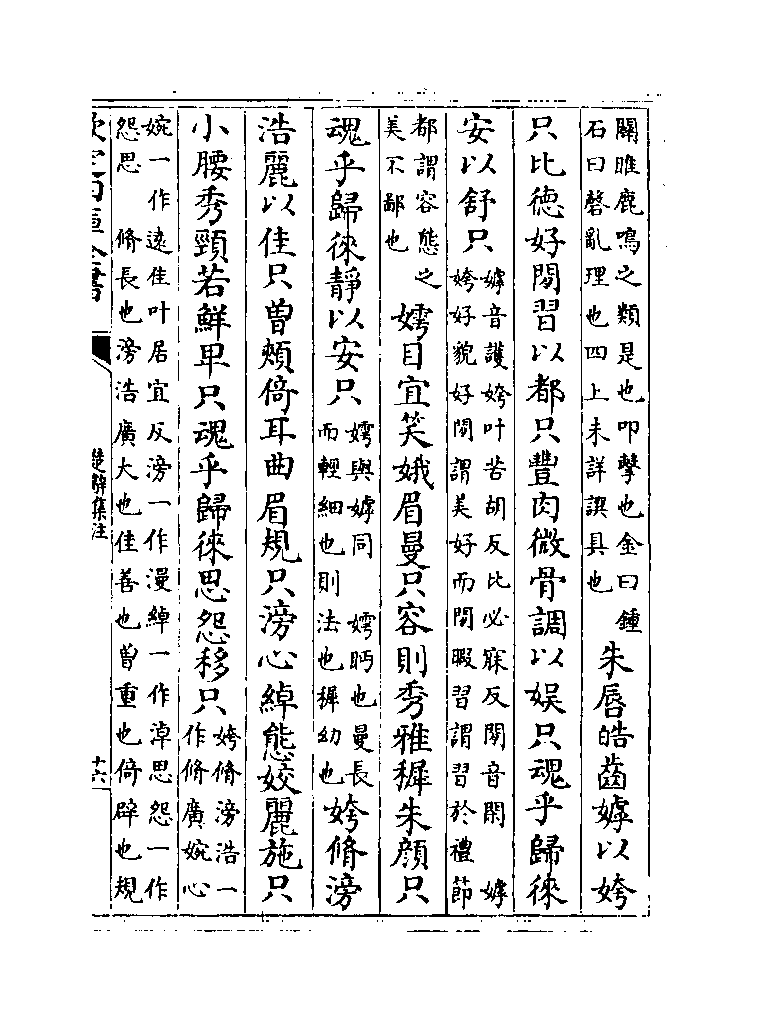 關雎鹿鳴之類是也叩擊也金曰鍾
石曰磬亂理也四上未詳譔具也
朱唇皓齒嫭以姱
只比德好閒習以都只豐肉微骨調以娛只魂乎歸徠
安以舒只
嫭音護姱叶苦胡反比必寐反閒音閑 嫭
姱好貌好閒謂美好而閒暇習謂習於禮節
都謂容態之
美不鄙也
嫮目宜笑娥眉曼只容則秀雅穉朱顔只
魂乎歸徠靜以安只
嫮與嫭同 嫮眄也曼長
而輕細也則法也穉幼也
姱脩滂
浩麗以佳只曾頰倚耳曲眉規只滂心綽態姣麗施只
小腰秀頸若鮮卑只魂乎歸徠思怨移只
姱脩滂浩一
作脩廣婉心
婉一作遠佳叶居宜反滂一作漫綽一作淖思怨一作
怨思 脩長也滂浩廣大也佳善也曾重也倚辟也規
欽定四庫全書
楚辭集注
十六